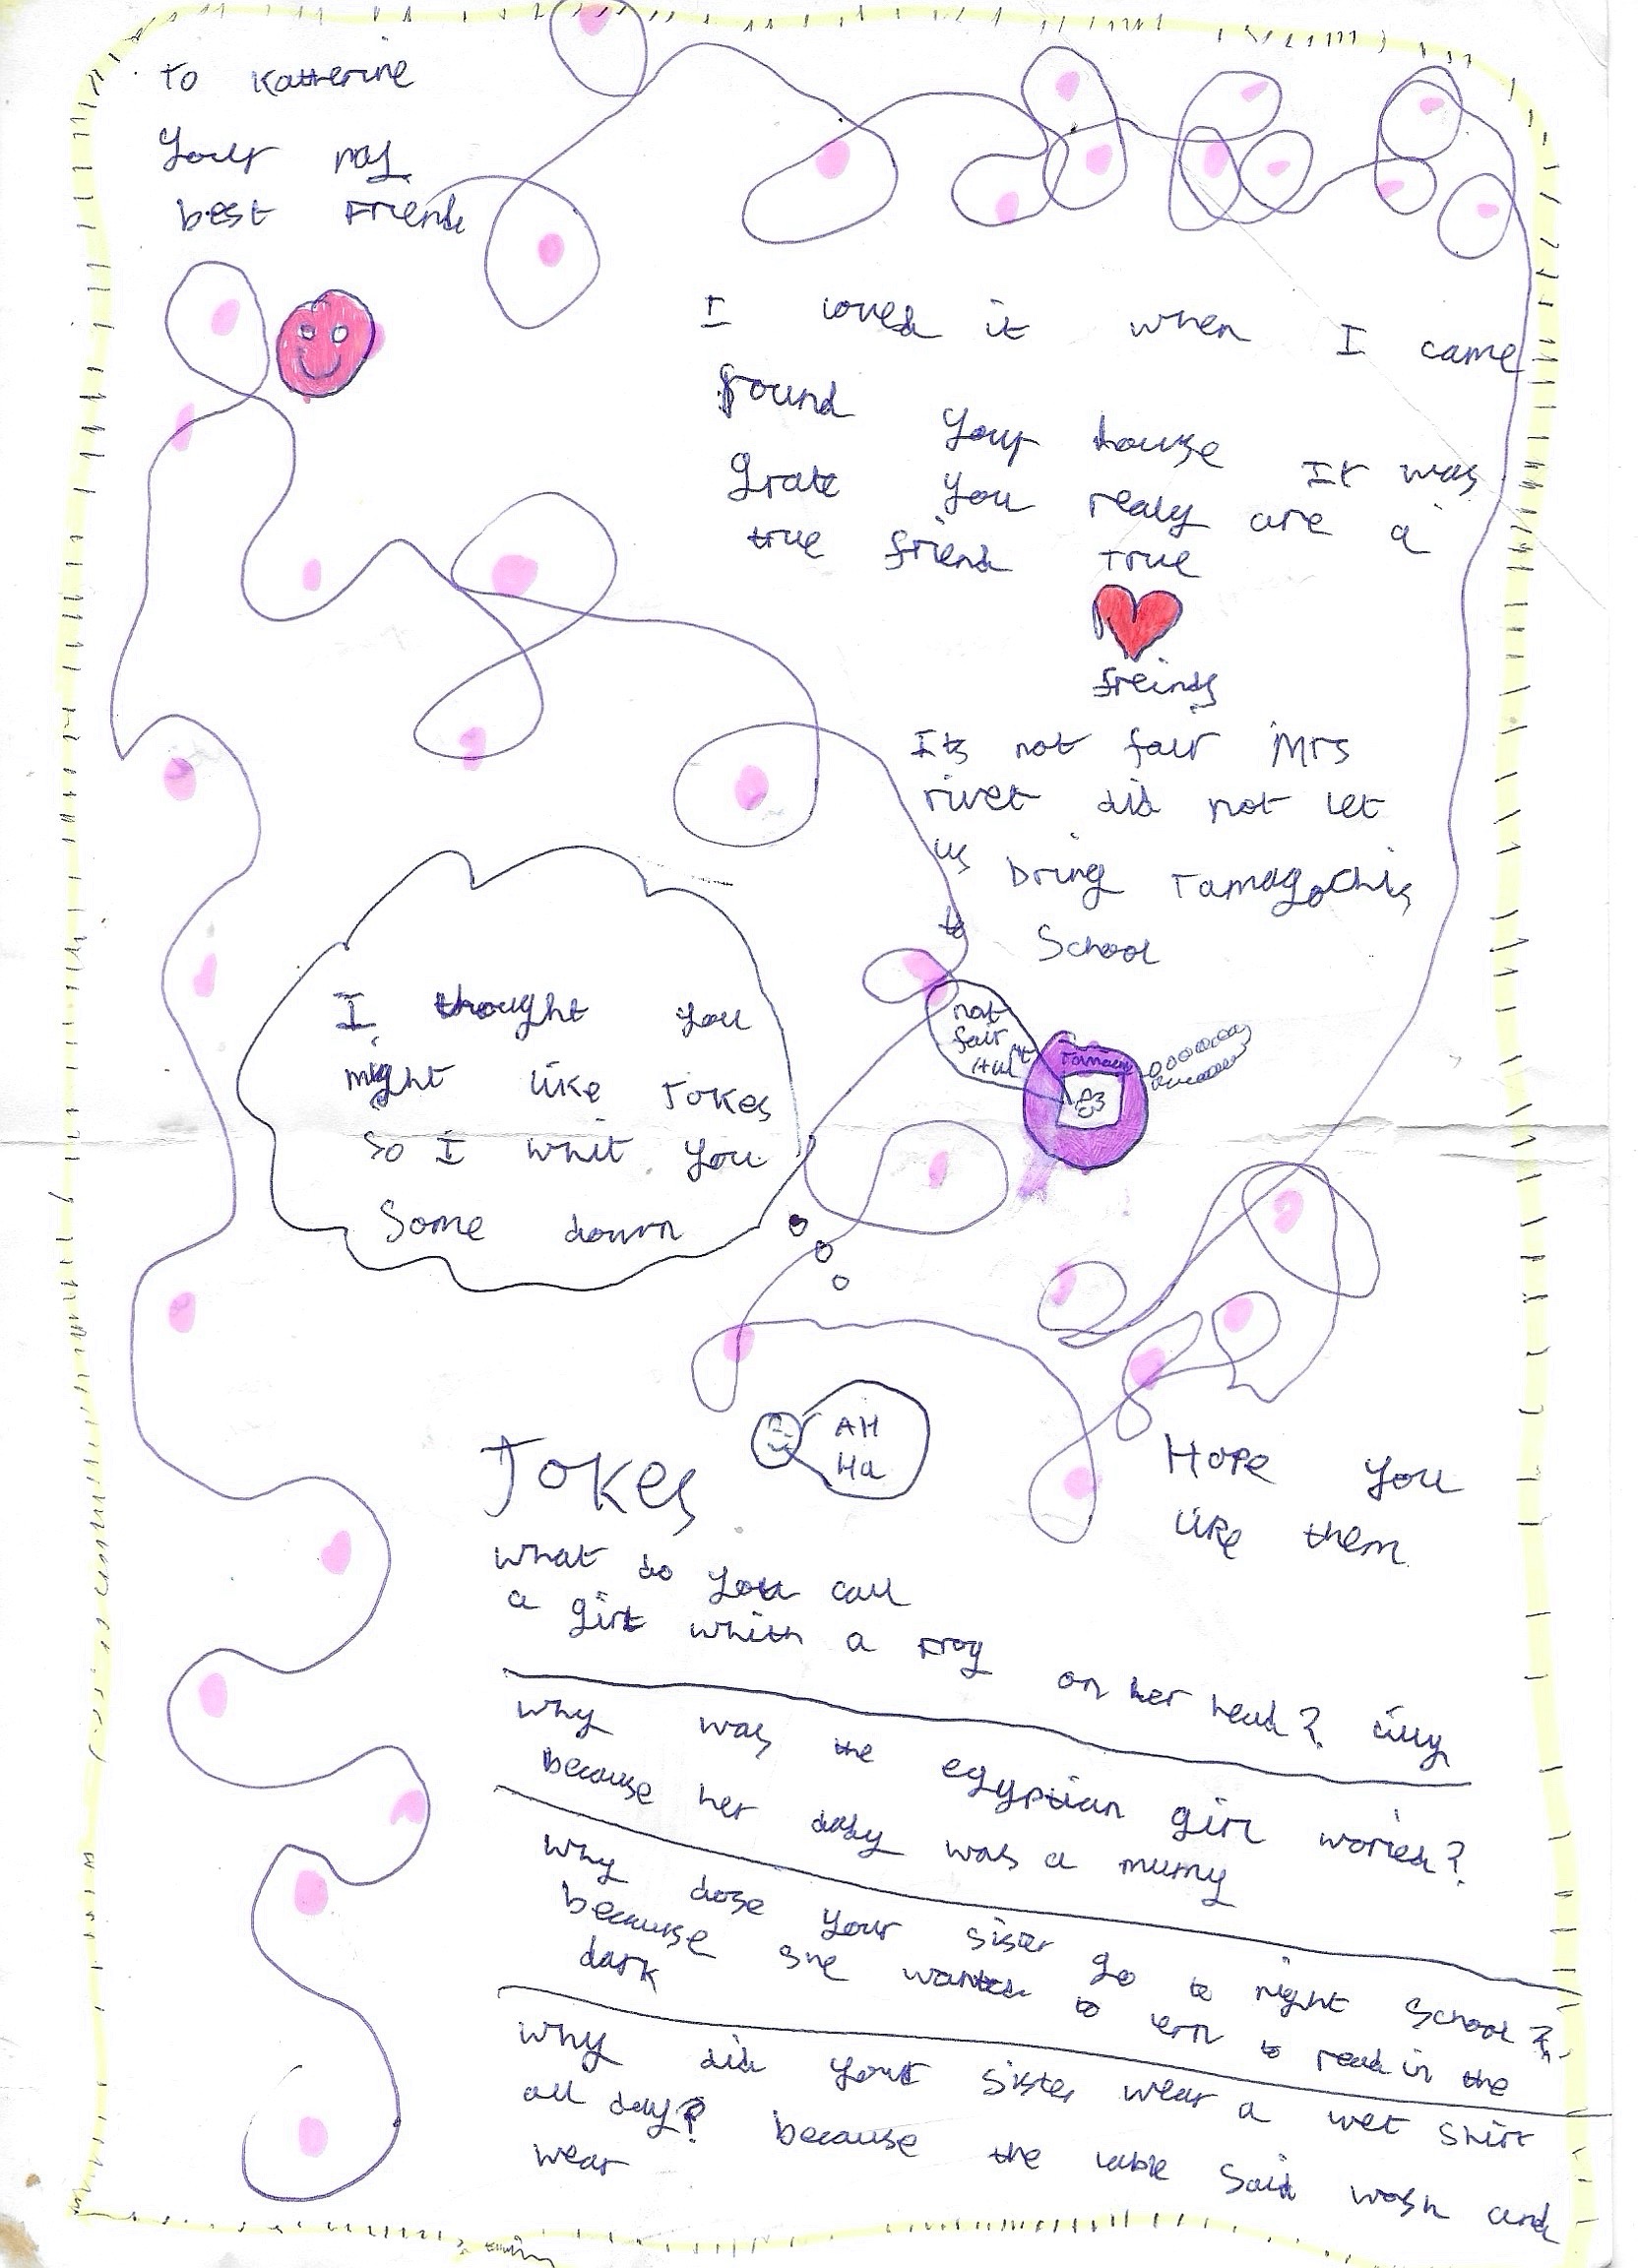 To Katherine
Your my
best Friend
I loved it when I came
round your house It was
grate you realy are a
true friend True
freinds
Its not fair Mrs
rivet did not let
us bring Tamagochis
to School
not
fair
I thought you
might like Jokes
so I whit you
Some down
AH
Ha
Jokes
Hope you
like them
what do you call
a girl whith a Frog on her head? lilly
why was the egyptian girl woried?
because her dady was a mumy
why dose your sister go to night school?
because she wanted to lern to read in the
dark
why did your sister wear a wet shirt
all day? because the lable said wash and
wear